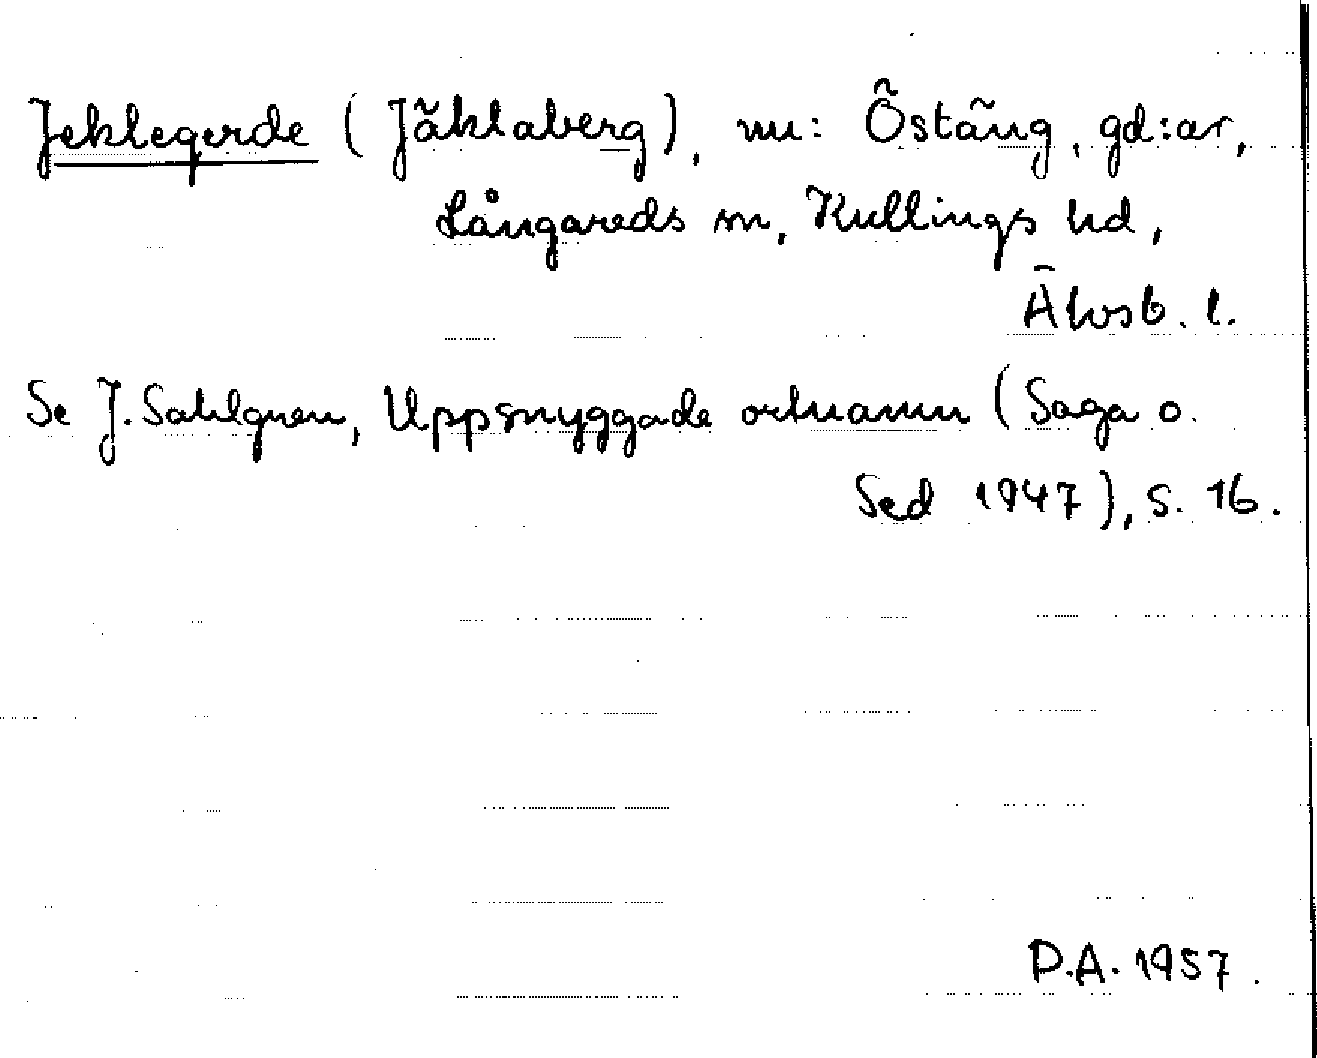 Jeklegerde (Jäklaberg), nu: Östäng, gd:ar,
Långareds sn, Kullings hd,
Älvsb. l.
Se J. Sahlgren, Uppsnyggade ortnamn (Saga o.
Sed 1947), s. 16.
D.A. 1957.